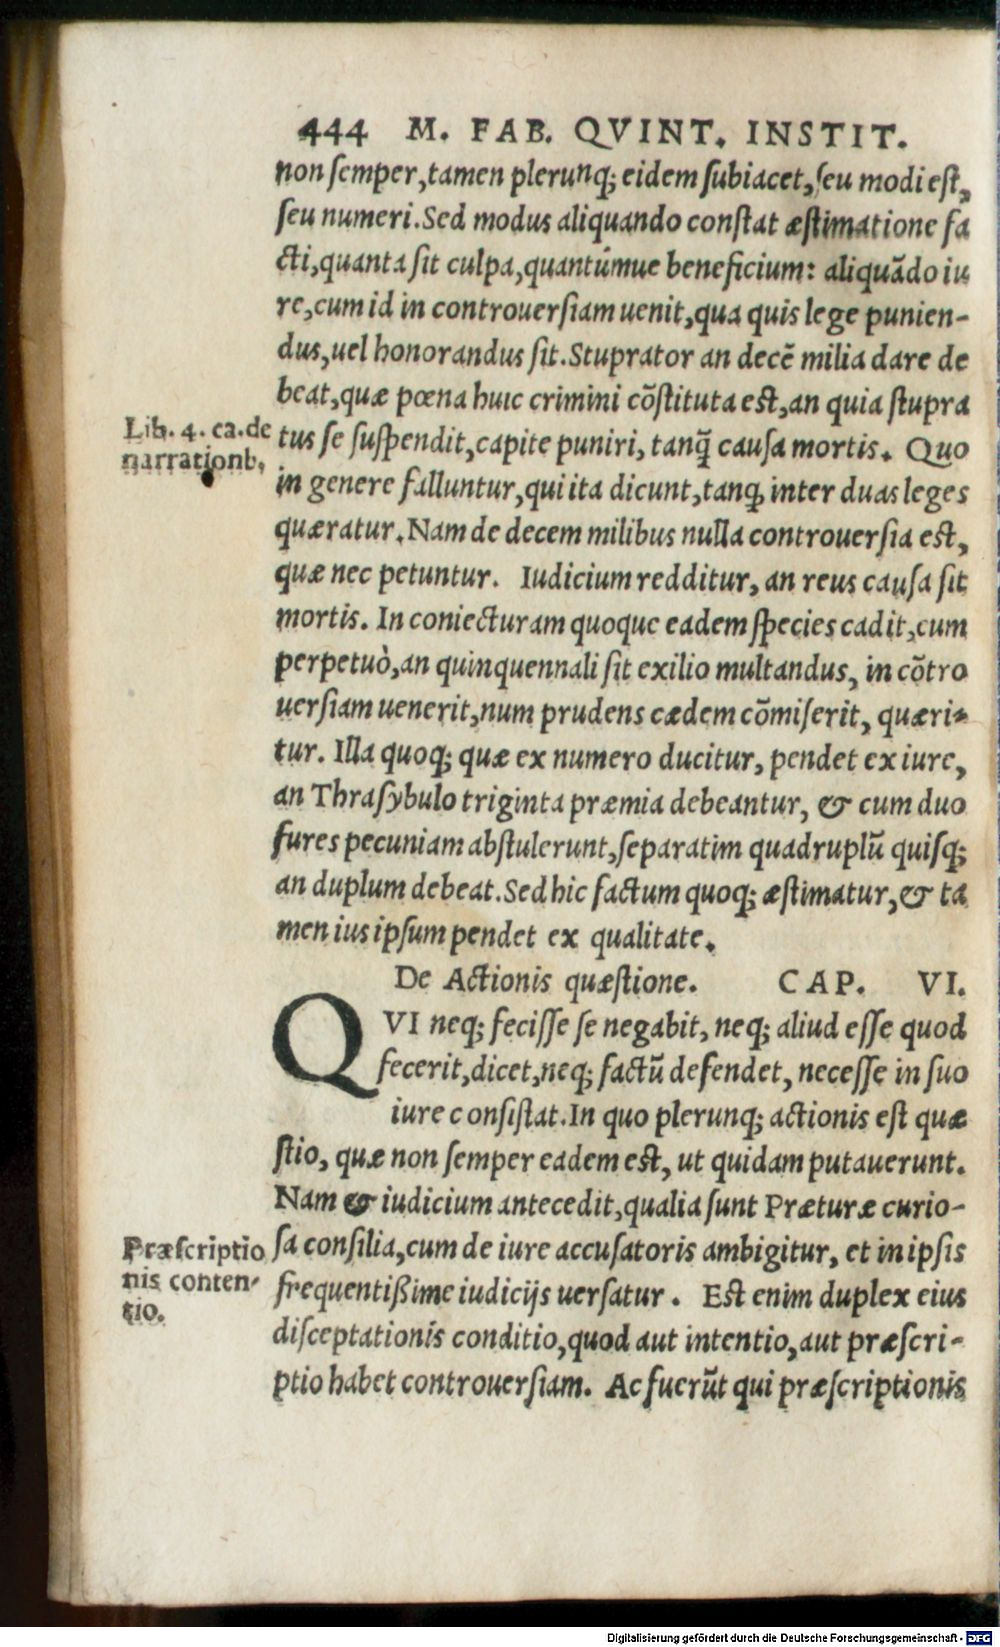 444 M. FAB. QVINT. INSTIT.
non ſemper, tamen plerunq; eidem ſubiacet, ſeu modi eſt,
ſeu numeri. Sed modus aliquando conſtat æſtimatione fa
cti, quanta ſit culpa, quantúmue beneficium: aliquādo iu
re, cum id in controuerſiam uenit, qua quis lege punien-
dus, uel honorandus ſit. Stuprator an decē milia dare de
beat, quæ pœna huic crimini cōſtituta eſt, an quia ſtupra
Lib. 4. ca. de
narrationb.
tus ſe ſuſpendit, capite puniri, tanq̄ cauſa mortis. Quo
in genere falluntur, qui ita dicunt, tanq̄ inter duas leges
quæratur. Nam de decem milibus nulla controuerſia eſt,
quæ nec petuntur. Iudicium redditur, an reus cauſa ſit
mortis. In coniecturam quoque eadem ſpecies cadit, cum
perpetuò, an quinquennali ſit exilio multandus, in cōtro
uerſiam uenerit, num prudens cædem cōmiſerit, quæri-
tur. Illa quoq; quæ ex numero ducitur, pendet ex iure,
an Thraſybulo triginta præmia debeantur, & cum duo
fures pecuniam abſtulerunt, ſeparatim quadruplū quiſq;
an duplum debeat. Sed hic factum quoq; æſtimatur, & ta
men ius ipſum pendet ex qualitate.
De Actionis quæſtione. CAP. VI.
QVI neq; feciſſe ſe negabit, neq; aliud eſſe quod
fecerit, dicet, neq; factū defendet, neceſſe in ſuo
iure conſiſtat. In quo plerunq; actionis eſt quæ
ſtio, quæ non ſemper eadem eſt, ut quidam putauerunt.
Nam & iudicium antecedit, qualia ſunt Præturæ curio-
Præſcriptio
nis conten-
tio.
ſa conſilia, cum de iure accuſatoris ambigitur, et in ipſis
frequentißime iudicijs uerſatur. Eſt enim duplex eius
diſceptationis conditio, quod aut intentio, aut præſcri-
ptio habet controuerſiam. Ac fuerūt qui præſcriptionis
Digitalisierung gefördert durch die Deutsche Forschungsgemeinschaft - DFG